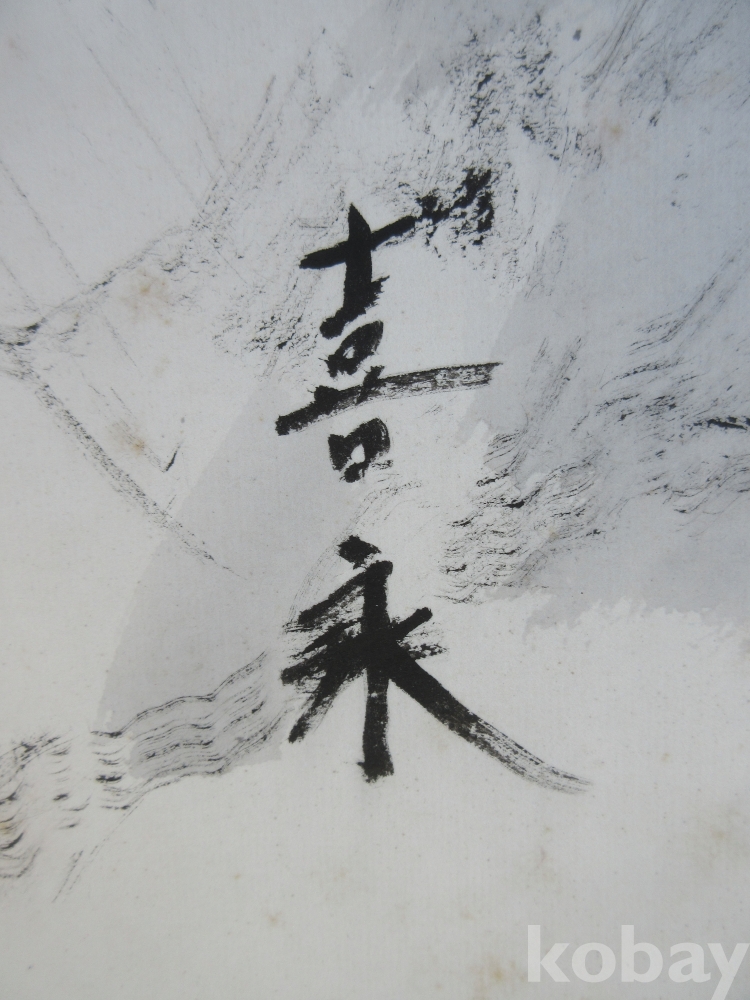 喜永
kobay